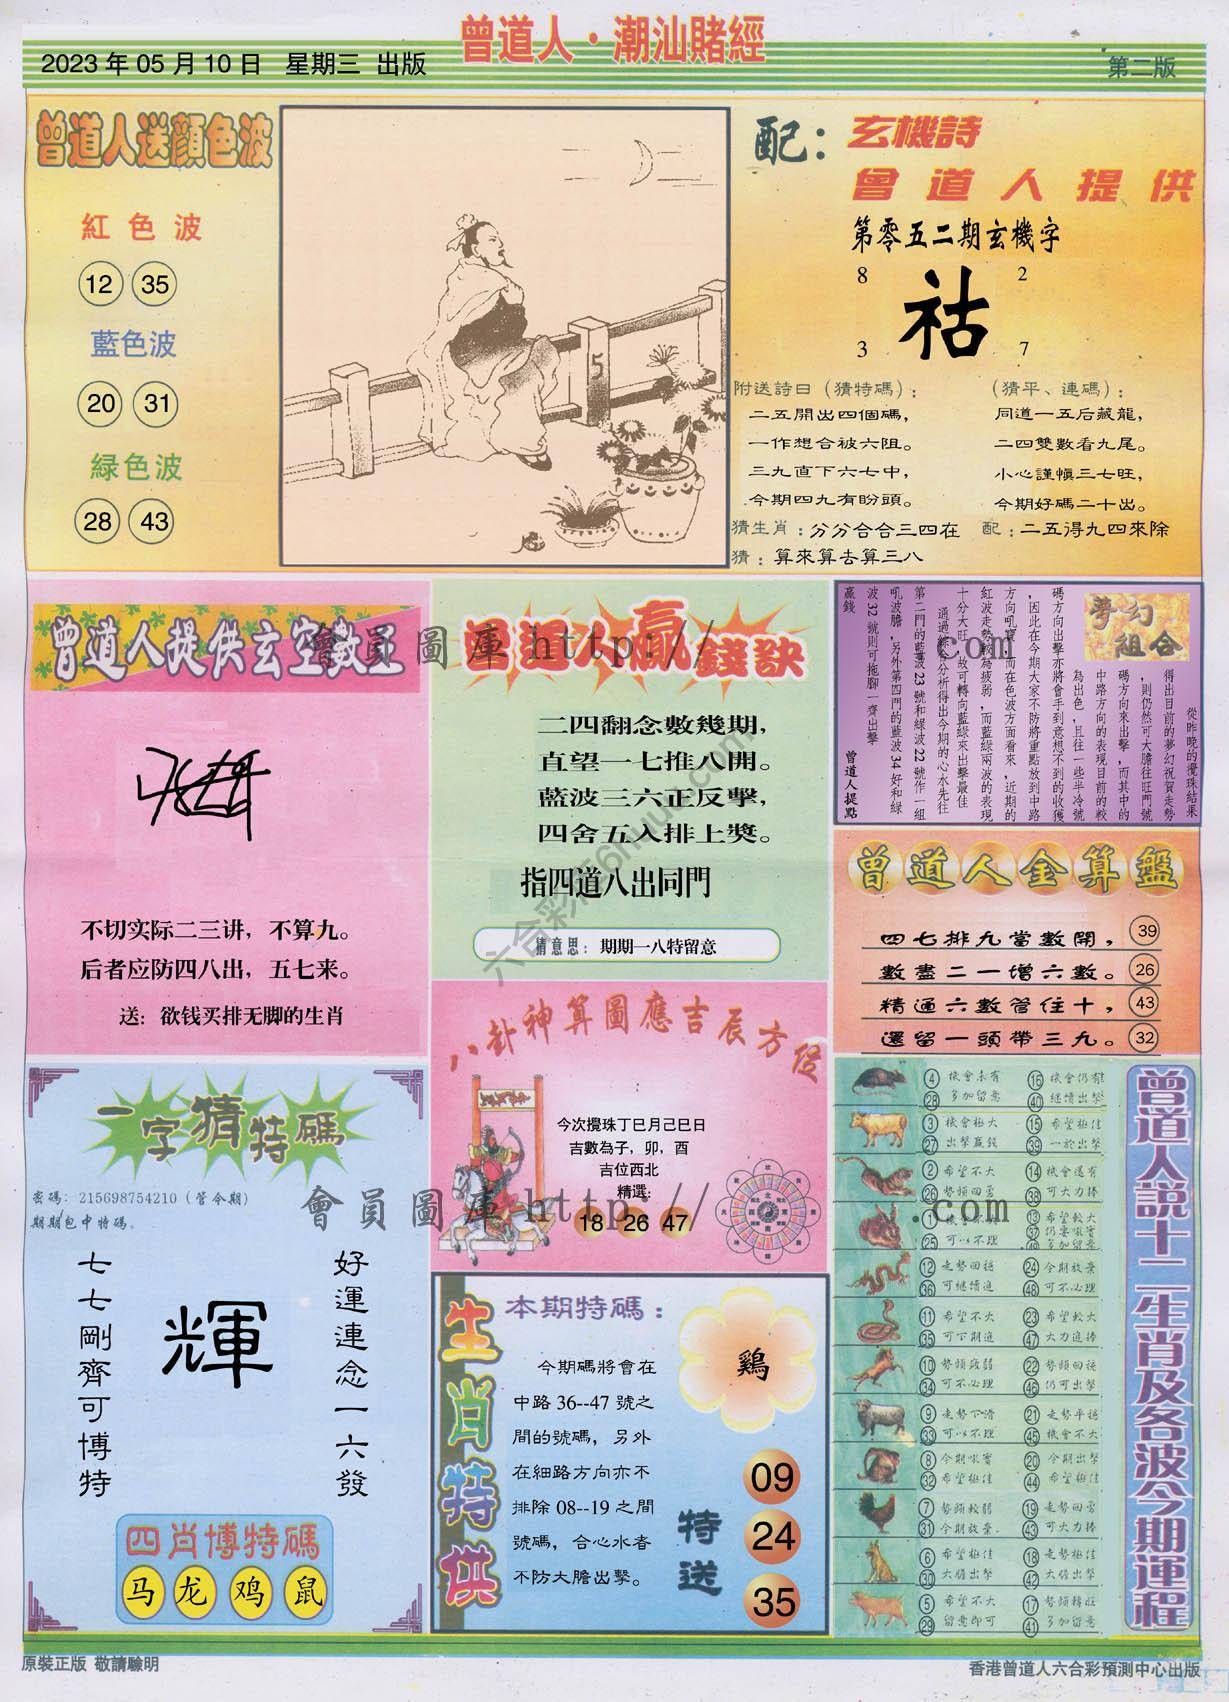 曾道人·潮汕賭經
2023年05月10日 星期三 出版
第二版
曾道人送顏色波
紅色波
12 35
藍色波
20 31
緑色波
28 43
5
配：玄機詩
曾道人提供
第零五二期玄機字
8 2
祜
3 7
附送詩曰（猜特碼）：
二五開出四個碼，
一作想合被六阻。
三九直下六七中，
今期四九有盼頭。
（猜平、連碼）：
同道一五后藏龍，
二四雙數看九尾。
小心謹慎三七旺，
今期好碼二十出。
猜生肖：分分合合三四在
配：二五得九四來除
猜：算來算去算三八
曾道人提供玄空數王
不切实际二三讲，不算九。
后者应防四八出，五七来。
送：欲钱买排无脚的生肖
曾道人贏錢訣
二四翻念數幾期，
直望一七推八開。
藍波三六正反擊，
四舍五入排上獎。
指四道八出同門
猜意思：期期一八特留意
夢幻組合
從昨晚的攪珠結果
得出目前的夢幻祝賀走勢
，則仍然可大膽往旺門號
碼方向來出擊，而其中的
中路方向的表現目前的較
為出色，且往一些半冷號
碼方向出擊亦將會手到意想不到的收獲
，因此在今期大家不防將重點放到中路
方向吼寶，而在色波方面看來，近期的
紅波走勢較為疲弱，而藍綠兩波的表現
十分大旺，故可轉向藍綠來出擊最佳
通過綜合分析得出今期的心水先往
第二門的藍波23號和绿波22號作一組
吼波膽，另外第四門的藍波34好和綠
波32號則可拖腳一齊出擊
贏錢
曾道人提點
曾道人金算盤
四七排九當數開， 39
數盡二一增六數。 26
精通六數管住十， 43
還留一頭帶三九。 32
一字猜特碼
密碼：215698754210（管令期）
期期包中特碼。
好運連念一六發
輝
七七剛齊可博特
四肖博特碼
马 龙 鸡 鼠
八卦神算圖應吉辰方位
今次攪珠丁巳月己巳日
吉數為子，卯，酉
吉位西北
精選：
18 26 47
生肖特供
本期特碼：
今期碼將會在
中路36--47號之
間的號碼，另外
在細路方向亦不
排除08--19之間
號碼，合心水者
不防大膽出擊。
鷄
特送
09
24
35
曾道人説十二生肖及各波今期運程
4 28 機會未有 多加留意 16 40 機會仍有 继續出擊
3 27 機會極大 出擊贏錢 15 39 希望極佳 一於出擊
2 26 希望不大 勢頭回勇 14 38 機會還有 可大力捧
1 25 可以不理 13 37 49 希望較大 仍要吼實 多加留意
12 36 走勢回穩 可继續進 24 48 今期放棄 可不心理
11 35 希望不大 可下期進 23 47 希望較大 大力進捧
10 34 勢頭疲弱 可不心理 22 46 勢頭回穩 仍可出擊
9 33 走勢下滑 可以不理 21 45 走勢平穩 機會不大
8 32 今期吼實 希望極佳 20 44 今期出擊 希望極佳
7 31 勢頭較弱 今期放棄 19 43 走勢回勇 可大力捧
6 30 希望極佳 大膽出擊 18 42 走勢極佳 大膽出擊
5 29 希望不大 留意即可 17 41 勢頭轉旺 多加留意
會員圖庫 http:// .com
會員圖庫 http:// .com
原裝正版 敬請驗明
香港曾道人六合彩預測中心出版